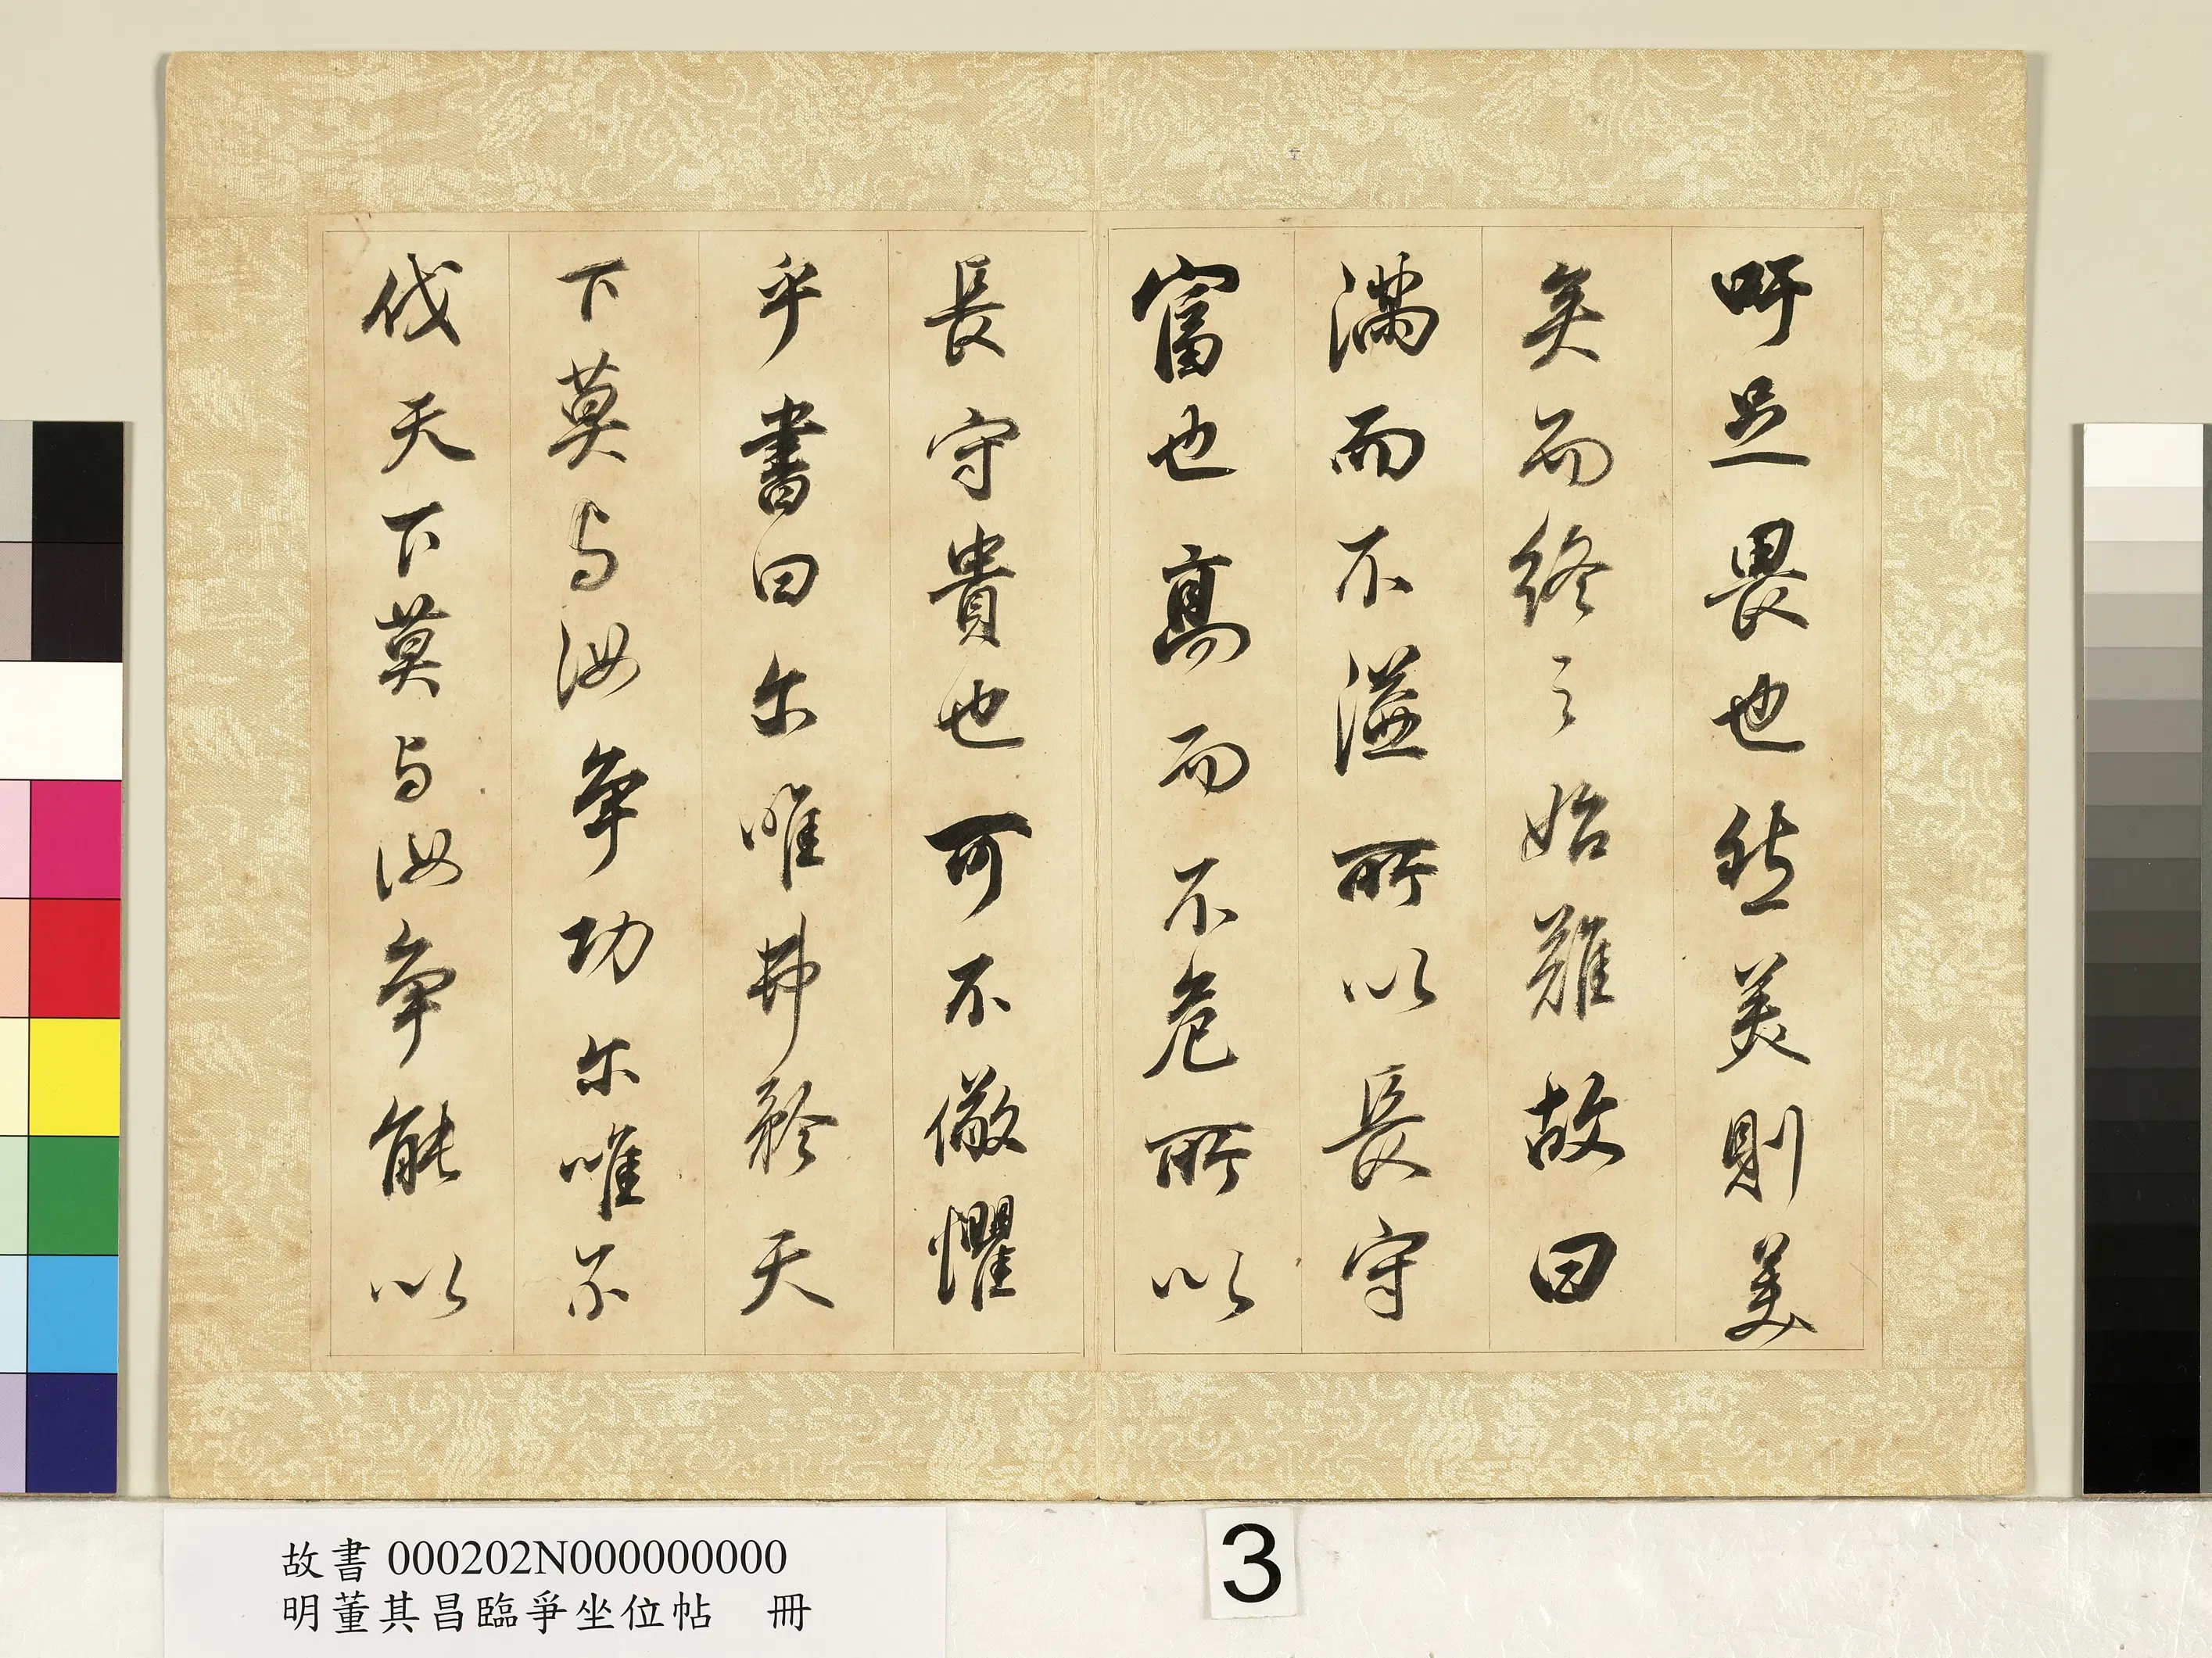 吁足畏也然美則美
矣而終之始難故曰
滿而不溢所以長守
富也高而不危所以
長守貴也可不儆懼
乎書曰尔唯弗矜天
下莫与汝争功尔唯不
伐天下莫与汝争能以
故書 000202N000000000
明董其昌臨爭坐位帖 冊
3